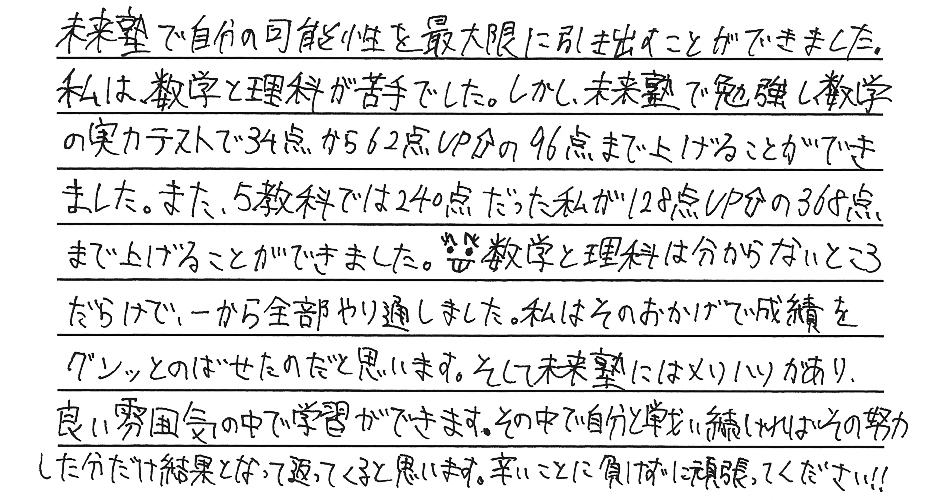 未来塾で自分の可能性を最大限に引き出すことができました。
私は、数学と理科が苦手でした。しかし、未来塾で勉強し、数学
の実力テストで34点から62点UP⤴の96点まで上げることができ
ました。また、5教科では240点だった私が128点UP⤴の368点
まで上げることができました。数学と理科は分からないところ
だらけで、一から全部やり通しました。私はそのおかげで成績を
グンッとのばせたのだと思います。そして未来塾にはメリハリがあり、
良い雰囲気の中で学習ができます。その中で自分と戦い続ければその努力
した分だけ結果となって返ってくると思います。辛いことに負けずに頑張ってください!!